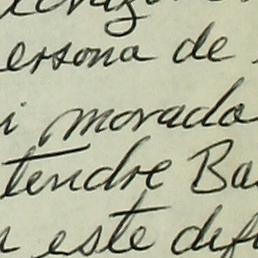 ersona de
i morada
tendre Ba
este dif